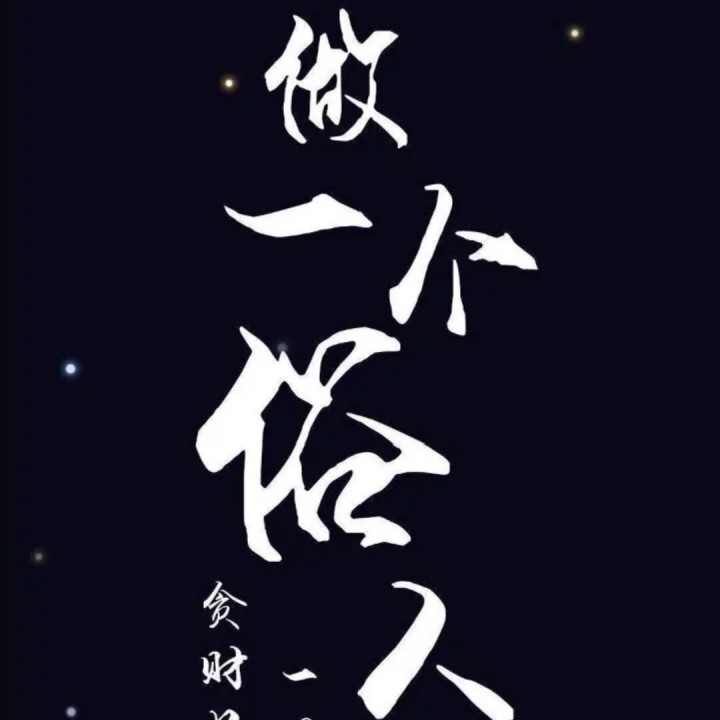 做一个俗人
贪财
一